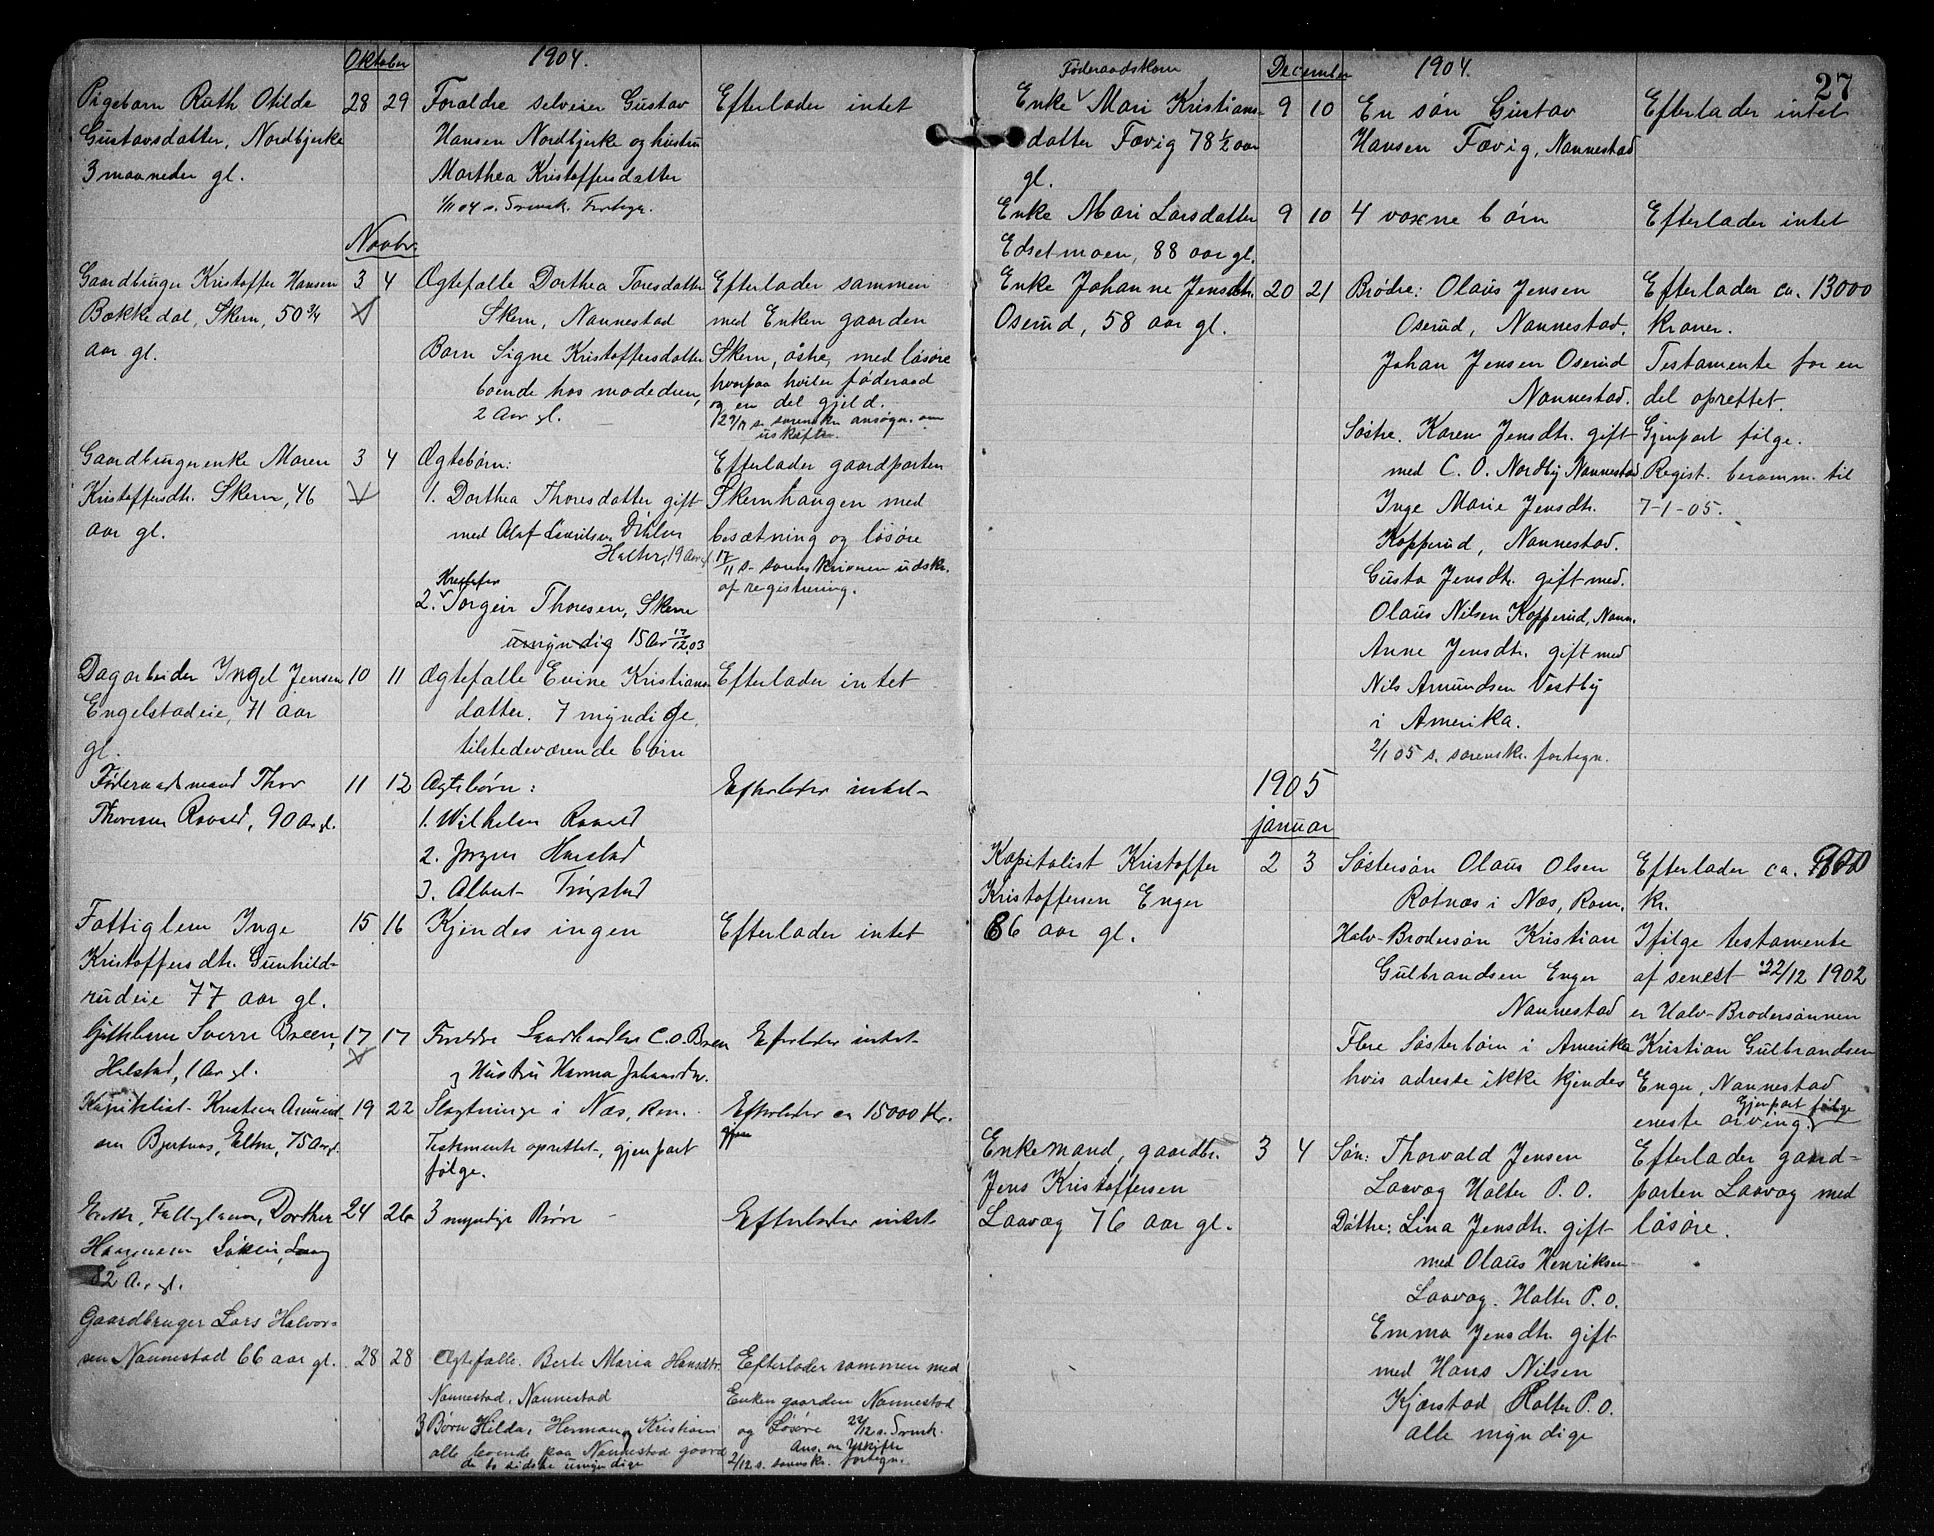 Oktober 1904.
Pigebarn Ruth Otilde 28 29 Foraldre selveier Gustav Efterlader intet
Gustavsdatter, Nordbjerke Hansen Nordbjerke og hustru
3 maaneder gl. Marthea Kristoffersdatter
1/11 04 s. Sorensk.
Novbr.
Gaardbruger Kristoffer Hansen 3 4 Ægtefalle Dorthea Toresdatter Efterlader sammen
Bækkedal, Skern, 50 3/4 Skern, Nannestad med Enken gaarden
aar gl. Barn Signe Kristoffersdatter Skern, østre, med løsøre
boende hos moderen, hvorpaa hviler føderaad
2 Aar gl. og en del gjeld.
s. sorenskr. ansøgn. om
uskifte.
Gaardbrugerenke Maren 3 4 Ægtebørn: Efterlader gaardparten
Kristoffersdtr. Skern, 46 1. Dorthea Thoresdatter gift Skernhaugen med
aar gl. med Olaf Lauritsen besætning og løsøre
Halter, 19 Aar gl. 17/11 s. sorenskriveren udskr.
Kristofer af registrering.
2. Torgeir Thoresen, Skern
umyndig 15 Aar 17/12.03
Dagarbeider Ingel Jensen 10 11 Ægtefalle Evine Kristians Efterlader intet
Engelstadeie, 71 aar datter. 7 myndige,
gl. tilstedeværende børn
Føderaadsmand Thor 11 12 Ægtebørn: Efterlader intet
Thoresen Raaold, 90 Ar gl. 1. Wilhelm Raaold
2. Jørgen Harstad
3. Albert
Fattiglem Inge 15 16 Kjendes ingen Efterlader intet
Kristoffersdtr. Gunhild-
rudeie 77 aar gl.
Sverre Breen, 17 17 Foreldre Landhandler C. O. Breen Efterlader intet
Halstad, 1 Ar gl. og Hustru Herma Johansdtr.
Kapitalist Kristian Amund 19 22 Slægtninge i Næs, Rom. Efterlader ca 15000 Kr.
sen Bjertnæs, Eltne, 75 Ar gl. Testamente oprettet, gjenpart gjen
følge.
Enke, Fattiglem, Dorthea 24 26 3 myndige Børn Efterlader intet
Hansen
82 Ar gl.
Gaardbruger Lars Halvor-
sen Nannestad 66 aar gl. 28 28 Ægtefalle. Berte Maria Hansdtr. Efterlader sammen med
Nannestad, Nannestad Enken gaarden Nannestad
3 Børn Hilda, Herman og Kristian og Løsøre
alle boende paa Nannestad gaard Ans. om Uskifte
de to sidste umyndige 2/12 s. sorenskr. fortegn.
27
December 1904.
Føderaadskone
Enke Mari Kristians- 9 10 En søn Gustav Efterlader intet
datter Fævig 78 1/2 aar Hansen Fævig, Nannestad
gl.
Enke Mari Larsdatter 9 10 4 voxne børn Efterlader intet
Edsetmoen, 88 aar gl.
Enke Johanne Jensdtr. 20 21 Brødre: Olaus Jensen Efterlader ca. 13000
Oserud, 58 aar gl. Oserud, Nannestad. kroner.
Johan Jensen Oserud Testamente for en
Nannestad. del oprettet.
Søstre. Karen Jensdtr. gift Gjenpart følge.
med C. O. Nordby Nannestad Regist. beramm. til
Inge Marie Jensdtr. 7-1-05.
Kopperud, Nannestad.
Gusta Jensdtr. gift med.
Olaus Nilsen Kopperud, Nann.
Anne Jensdtr. gift med
Nils Amundsen Vestby
i Amerika.
2/1 05 s. sorenskr. fortegn.
1905
januar
Kapitalist Kristoffer 2 3 Søstersøn Olaus Olsen Efterlader ca.
Kristoffersen Enger Rotnæs i Næs, Rom. kr.
86 aar gl. Halv-Brodersøn Kristian Ifølge testamente
Gulbrandsen Enger af senest 22/12 1902
Nannestad er Halv-Brodersønnen
Flere Søsterbørn i Amerika Kristian Gulbrandsen
hvis adresse ikke kjendes Enger, Nannestad
eneste arving. Gjenpart følge
Enkemand, gaardbr. 3 4 Søn: Thorvald Jensen Efterlader gaard-
Jens Kristoffersen Laavæg Halter P. O. parten Laavæg med
Laavæg 76 aar gl. Døttre: Lina Jensdtr. gift løsøre.
med Olaus Henriksen
Laavæg. Halter P. O.
Emma Jensdtr. gift
med Hans Nilsen
Kjærstad Halter P. O.
alle myndige